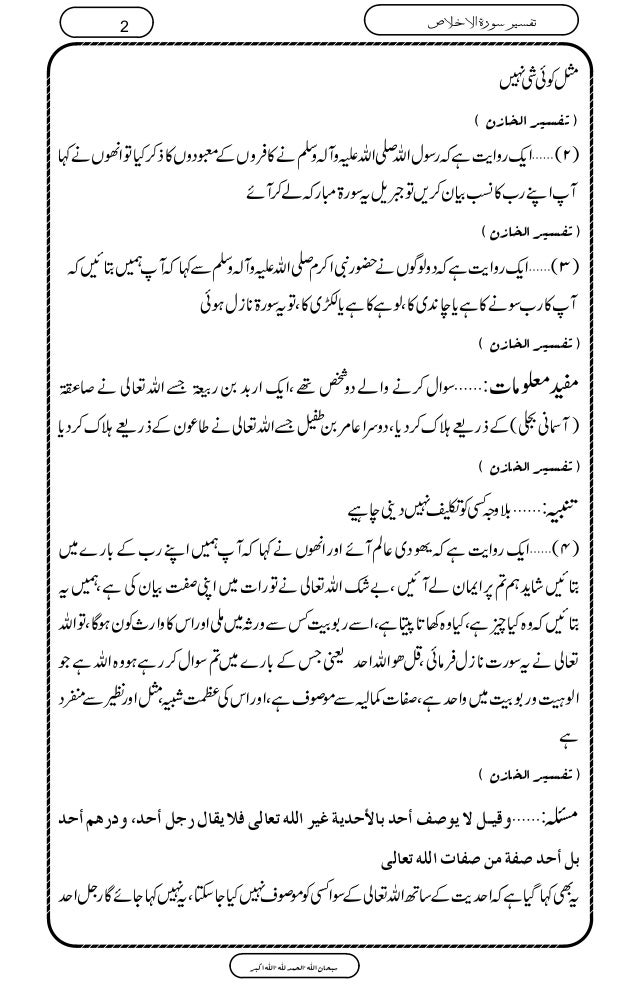 تفسیر سورۃ الاخلاص
2
مثل کوئی شی نہیں
(تفسیر الخازن)
(۲)......ایک روایت ہے کہ رسول اللہ صلی اللہ علیہ وآلہ وسلم نے کافروں کے معبودوں کا ذکر کیا تو انھوں نے کہا
آپ اپنے رب کا نسب بیان کریں تو جبریل یہ سورۃ مبارکہ لے کر آئے
(تفسیر الخازن)
(۳)......ایک روایت ہے کہ دو لوگوں نے حضور نبی اکرم صلی اللہ علیہ وآلہ وسلم سے کہا کہ آپ ہمیں بتائیں کہ
آپ کا رب سونے کا ہے یا چاندی کا، لوہے کا ہے یا لکڑی کا، تو یہ سورۃ نازل ہوئی
(تفسیر الخازن)
مفید معلومات:......سوال کرنے والے دو شخص تھے، ایک اربد بن ربیعۃ جسے اللہ تعالی نے صاعقۃ
(آسمانی بجلی) کے ذریعے ہلاک کر دیا، دوسرا عامر بن طفیل جسے اللہ تعالی نے طاعون کے ذریعے ہلاک کر دیا
(تفسیر الخازن)
تنبیہ:...... بلا وجہ کسی کو تکلیف نہیں دینی چاہیے
(۴)......ایک روایت ہے کہ یھودی عالم آئے اور انھوں نے کہا کہ آپ ہمیں اپنے رب کے بارے میں
بتائیں شاید ہم تم پر ایمان لے آئیں، بے شک اللہ تعالی نے تورات میں اپنی صفت بیان کی ہے، ہمیں یہ
بتائیں کہ وہ کیا چیز ہے، کیا وہ کھاتا پیتا ہے، اسے ربوبیت کس سے ورثہ میں ملی اور اس کا وارث کون ہوگا، تو اللہ
تعالی نے یہ سورت نازل فرمائی، قل ھو اللہ احد یعنی جس کے بارے میں تم سوال کر رہے ہو وہ اللہ ہے جو
الوہیت و ربوبیت میں واحد ہے، صفات کمالیہ سے موصوف ہے، اور اس کی عظمت شبیہ، مثل اور نظیر سے منفرد
ہے
(تفسیر الخازن)
مسئلہ:......وقيل لا يوصف أحد بالأحدية غير الله تعالى فلا يقال رجل أحد، ودرهم أحد
بل أحد صفة من صفات الله تعالى
یہ بھی کہا گیا ہے کہ احدیت کے ساتھ اللہ تعالی کے سوا کسی کو موصوف نہیں کیا جا سکتا، یہ نہیں کہا جائے گا رجل احد
سبحان اللہ الحمد للہ اللہ اکبر